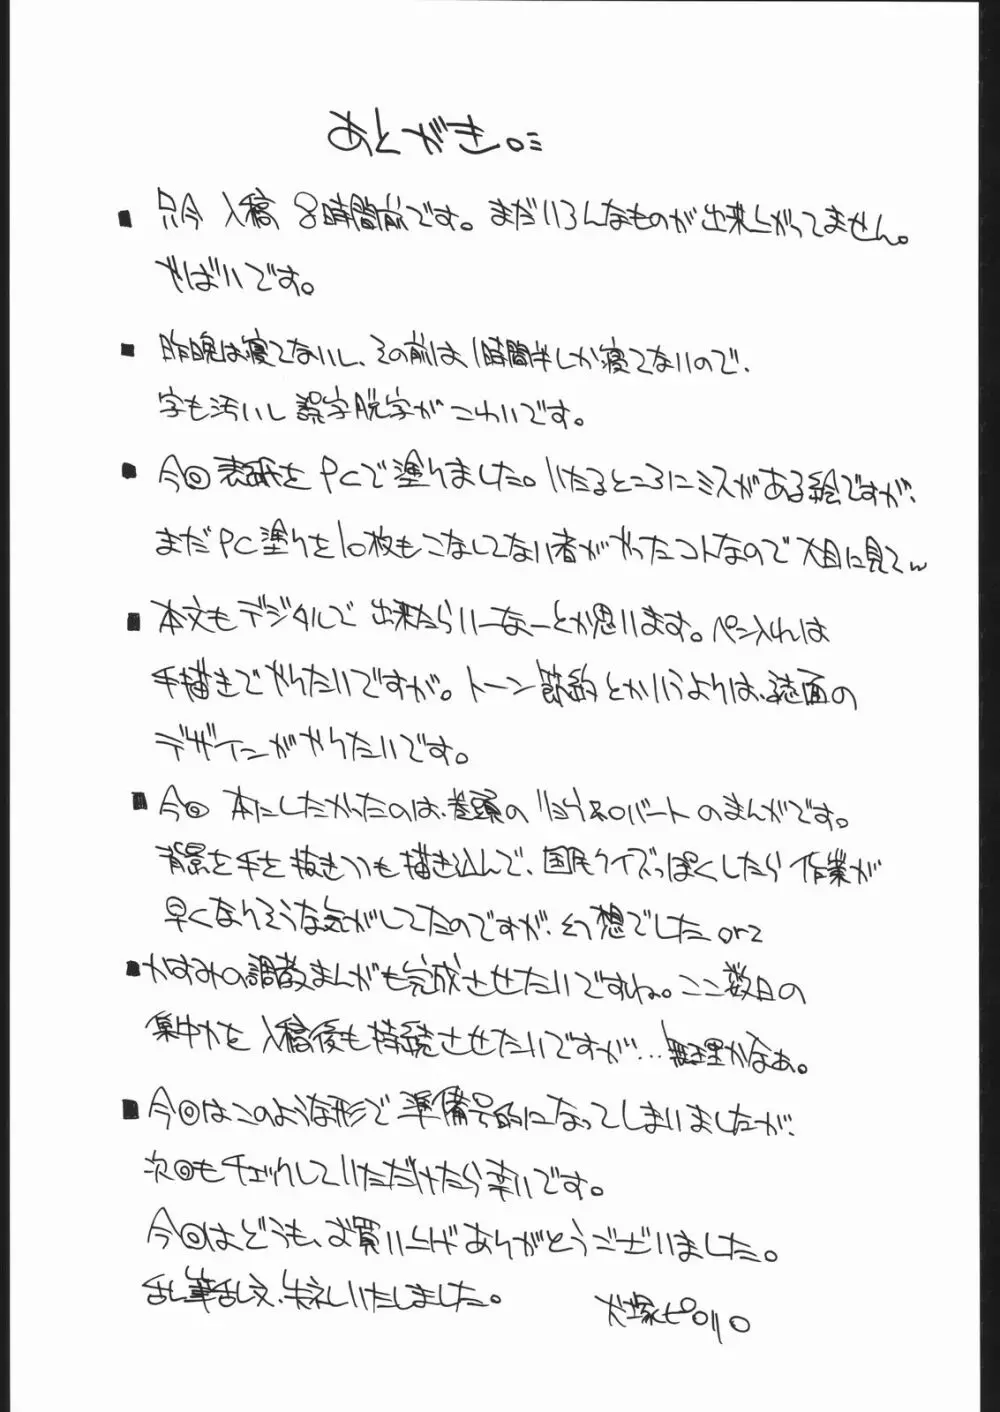 あとがき。
■ 只今 入稿 8時間前です。まだいろんなものが出来上がってません。
やばいです。
■ 昨晩は寝てないし、その前は1時間半しか寝てないので、
字も汚いし 誤字脱字がこわいです。
■ 今回表紙をPCで塗りました。いたるところにミスがある絵ですが、
まだPC塗りを10枚もこなしてない者がやったコトなので大目に見てw
■ 本文もデジタルで出来たらいーなーとか思います。ペン入れは
手描きでやりたいですが。トーン節約とかいうよりは、誌面の
デザインがやりたいです。
■ 今回 本にしたかったのは、巻頭の のまんがです。
背景を手を抜きつつも描き込んで、国民クイズっぽくしたら作業が
早くなりそうな気がしてたのですが、幻想でした orz
■ かすみの調教まんがも完成させたいですね。ここ数日の
集中力を入稿後も持続させたいですが…無理かなぁ。
■ 今回はこのような形で準備号的になってしまいましたが、
次回もチェックしていただけたら幸いです。
今回はどうも、お買い上げありがとうございました。
乱筆乱文、失礼いたしました。 犬塚ピロリロ